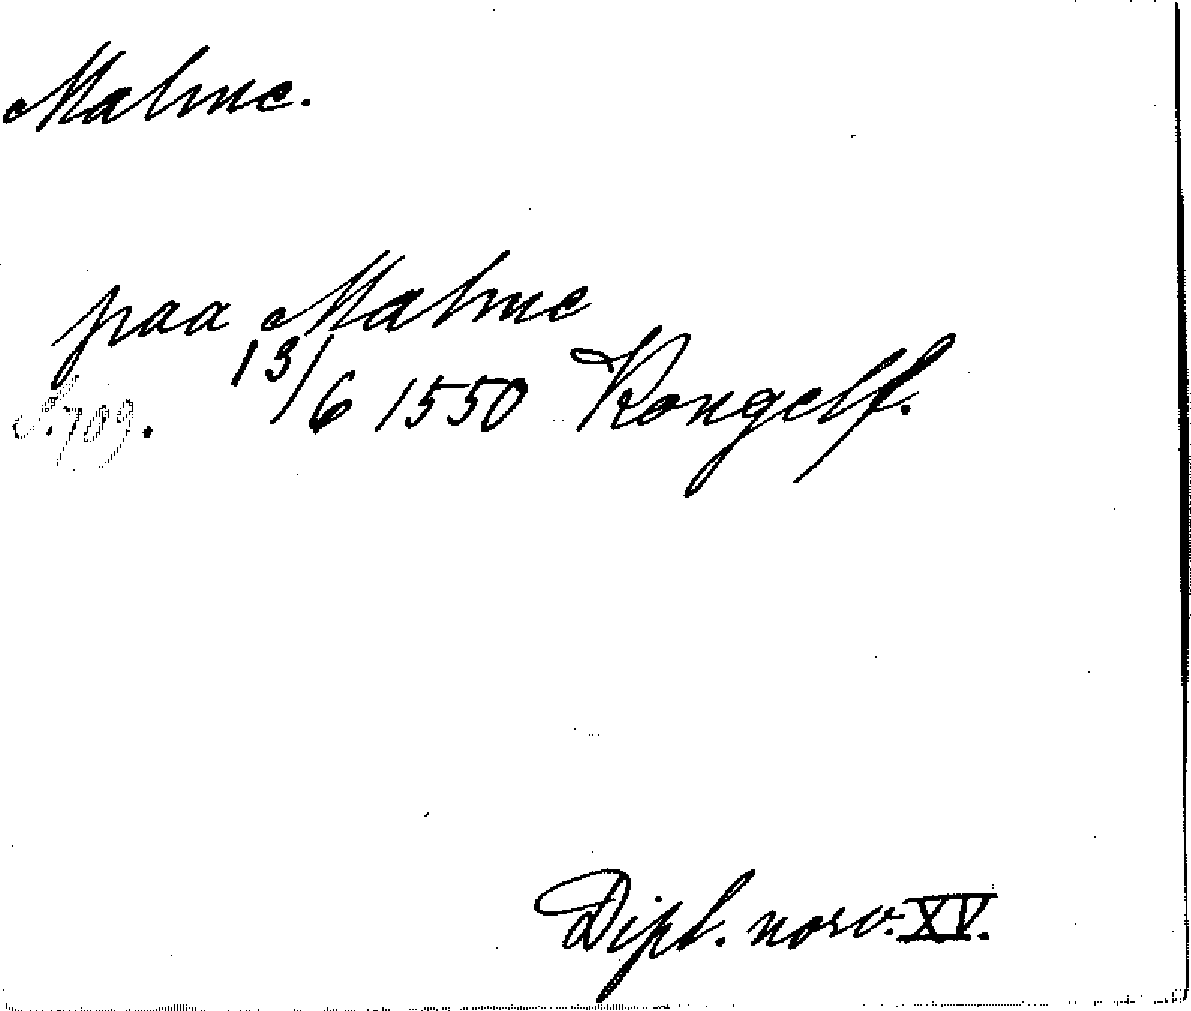 Malme.
paa Malme
13/6 1550 Kongelf.
S. 709.
Dipl. norv. XV.